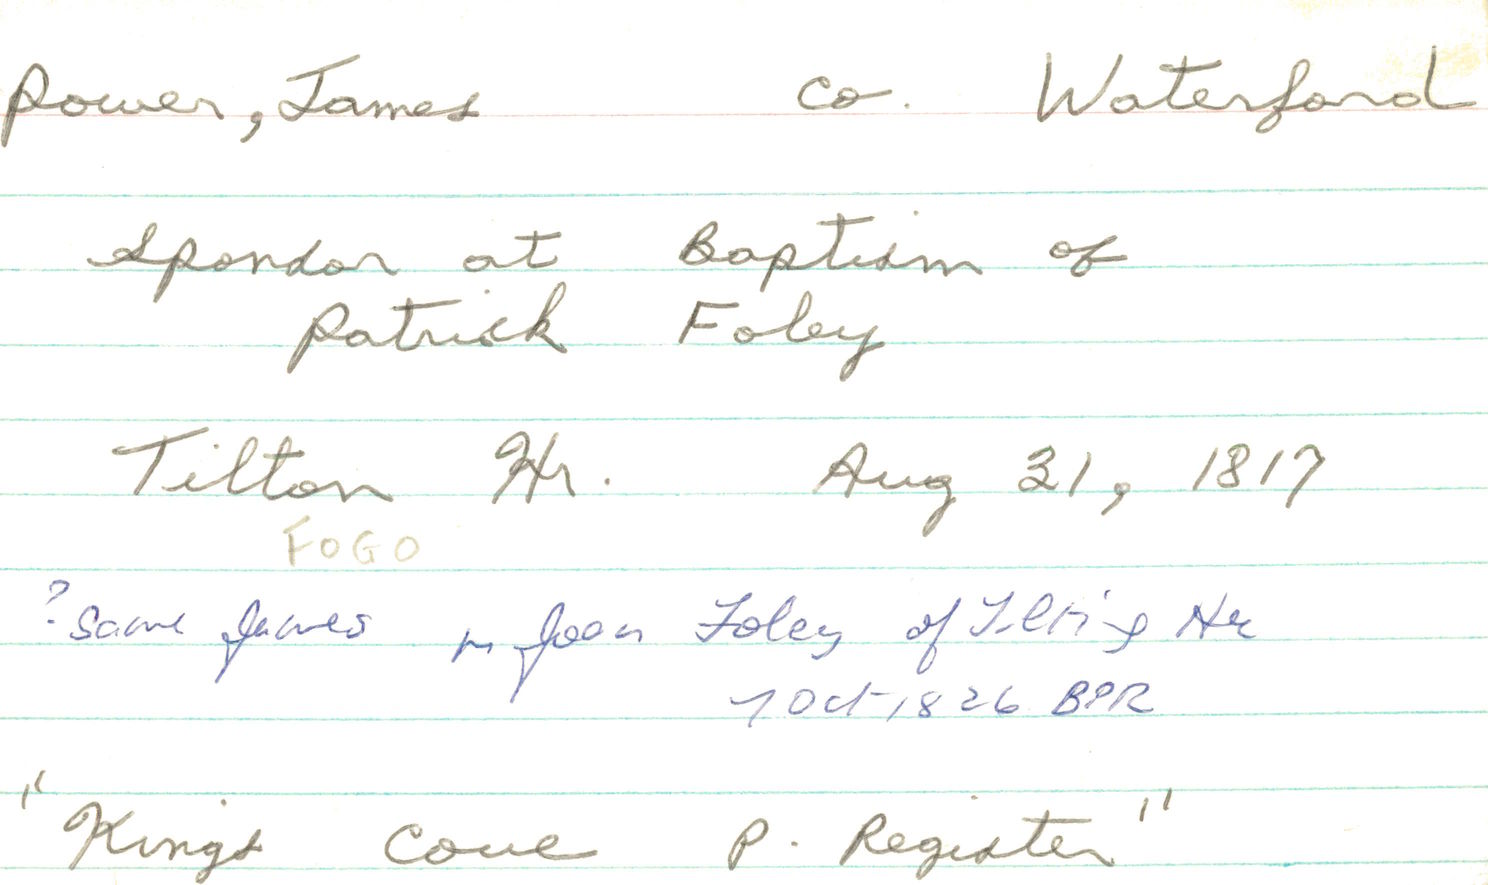 Power, James co. Waterford
Sponsor at Baptism of
Patrick Foley
Tilton Hr. Aug 21, 1817
FOGO
? Same James m Joan Foley of Tilting Hr
7 Oct 1826 BPR
"Kings Cove P. Register"